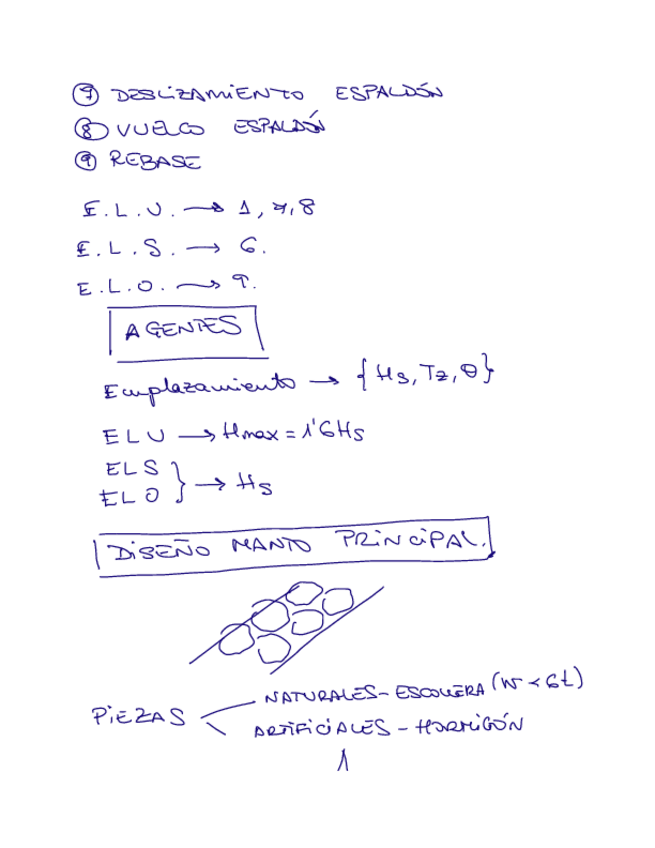 ⑦ DESLIZAMIENTO ESPALDÓN
⑧ VUELCO ESPALDÓN
⑨ REBASE
E.L.U. → 1, 7, 8
E.L.S. → 6.
E.L.O. → 9.
AGENTES
Emplazamiento → {Hs, Tz, θ}
ELU → Hmax = 1'6Hs
ELS
ELO } → Hs
DISEÑO MANTO PRINCIPAL.
PIEZAS
NATURALES - ESCOLLERA (W < 6t)
ARTIFICIALES - HORMIGÓN
1